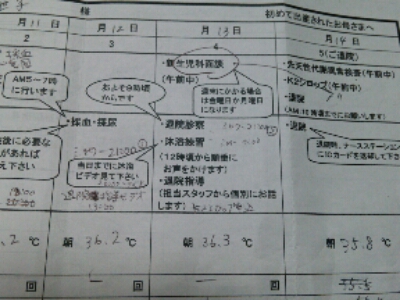 様
初めて出産されたお母さまへ
月 11 日
月 12 日
月 13 日
月 14 日
2
3
4
5 (ご退院)
AM5~7時
に行います
およそ9時頃
からです
・新生児科面談
(午前中)
週末にかかる場合
は金曜日か月曜日
になります
・先天性代謝異常検査(午前中)
・K2シロップ(午前中)
・退院
(AM.10時
・退院
・採血・採尿
・退院診察
・沐浴練習
(12時頃から順番に
お声をかけます)
・退院指導
(担当スタッフから個別にお話
します)
当日までに沐浴
ビデオ見て下さい
後に必要な
があれば
え下さい
退院時、ナースステーション
にIDカードを返却して下さい
.2 ℃
朝 36.2 ℃
朝 36.3 ℃
朝 35.8 ℃
回
一 回
一 回
回